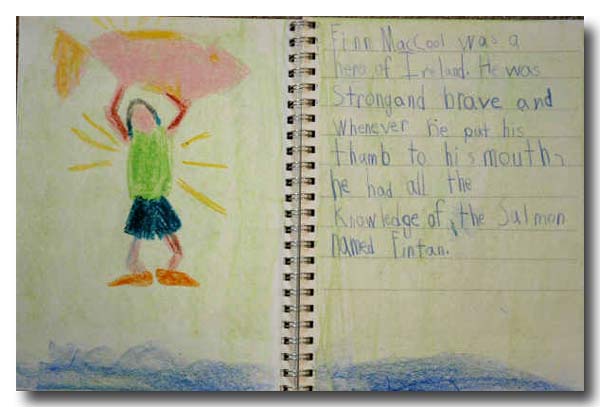 Finn MacCool was a
hero of Ireland. He was
Strongand brave and
Whenever he put his
thumb to his mouth,
he had all the
Knowledge of the Salmon
named Fintan.